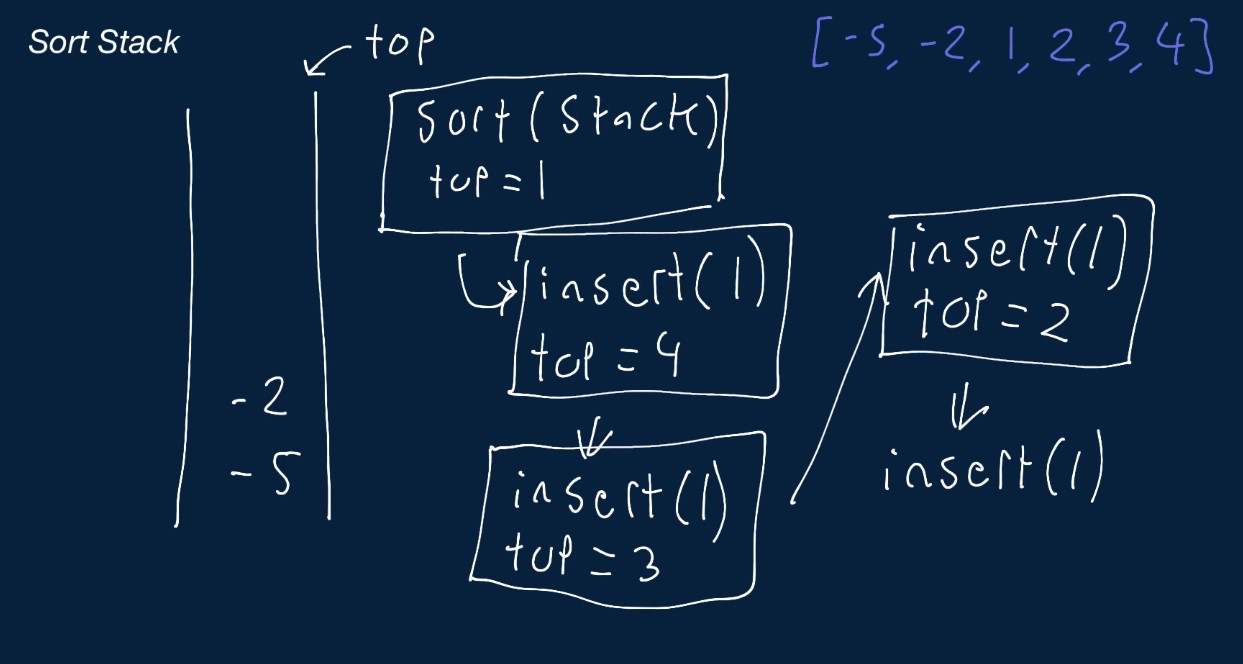 Sort Stack
top
[-5, -2, 1, 2, 3, 4]
Sort(Stack)
top = 1
insert(1)
top = 4
insert(1)
top = 3
insert(1)
top = 2
insert(1)
-2
-5